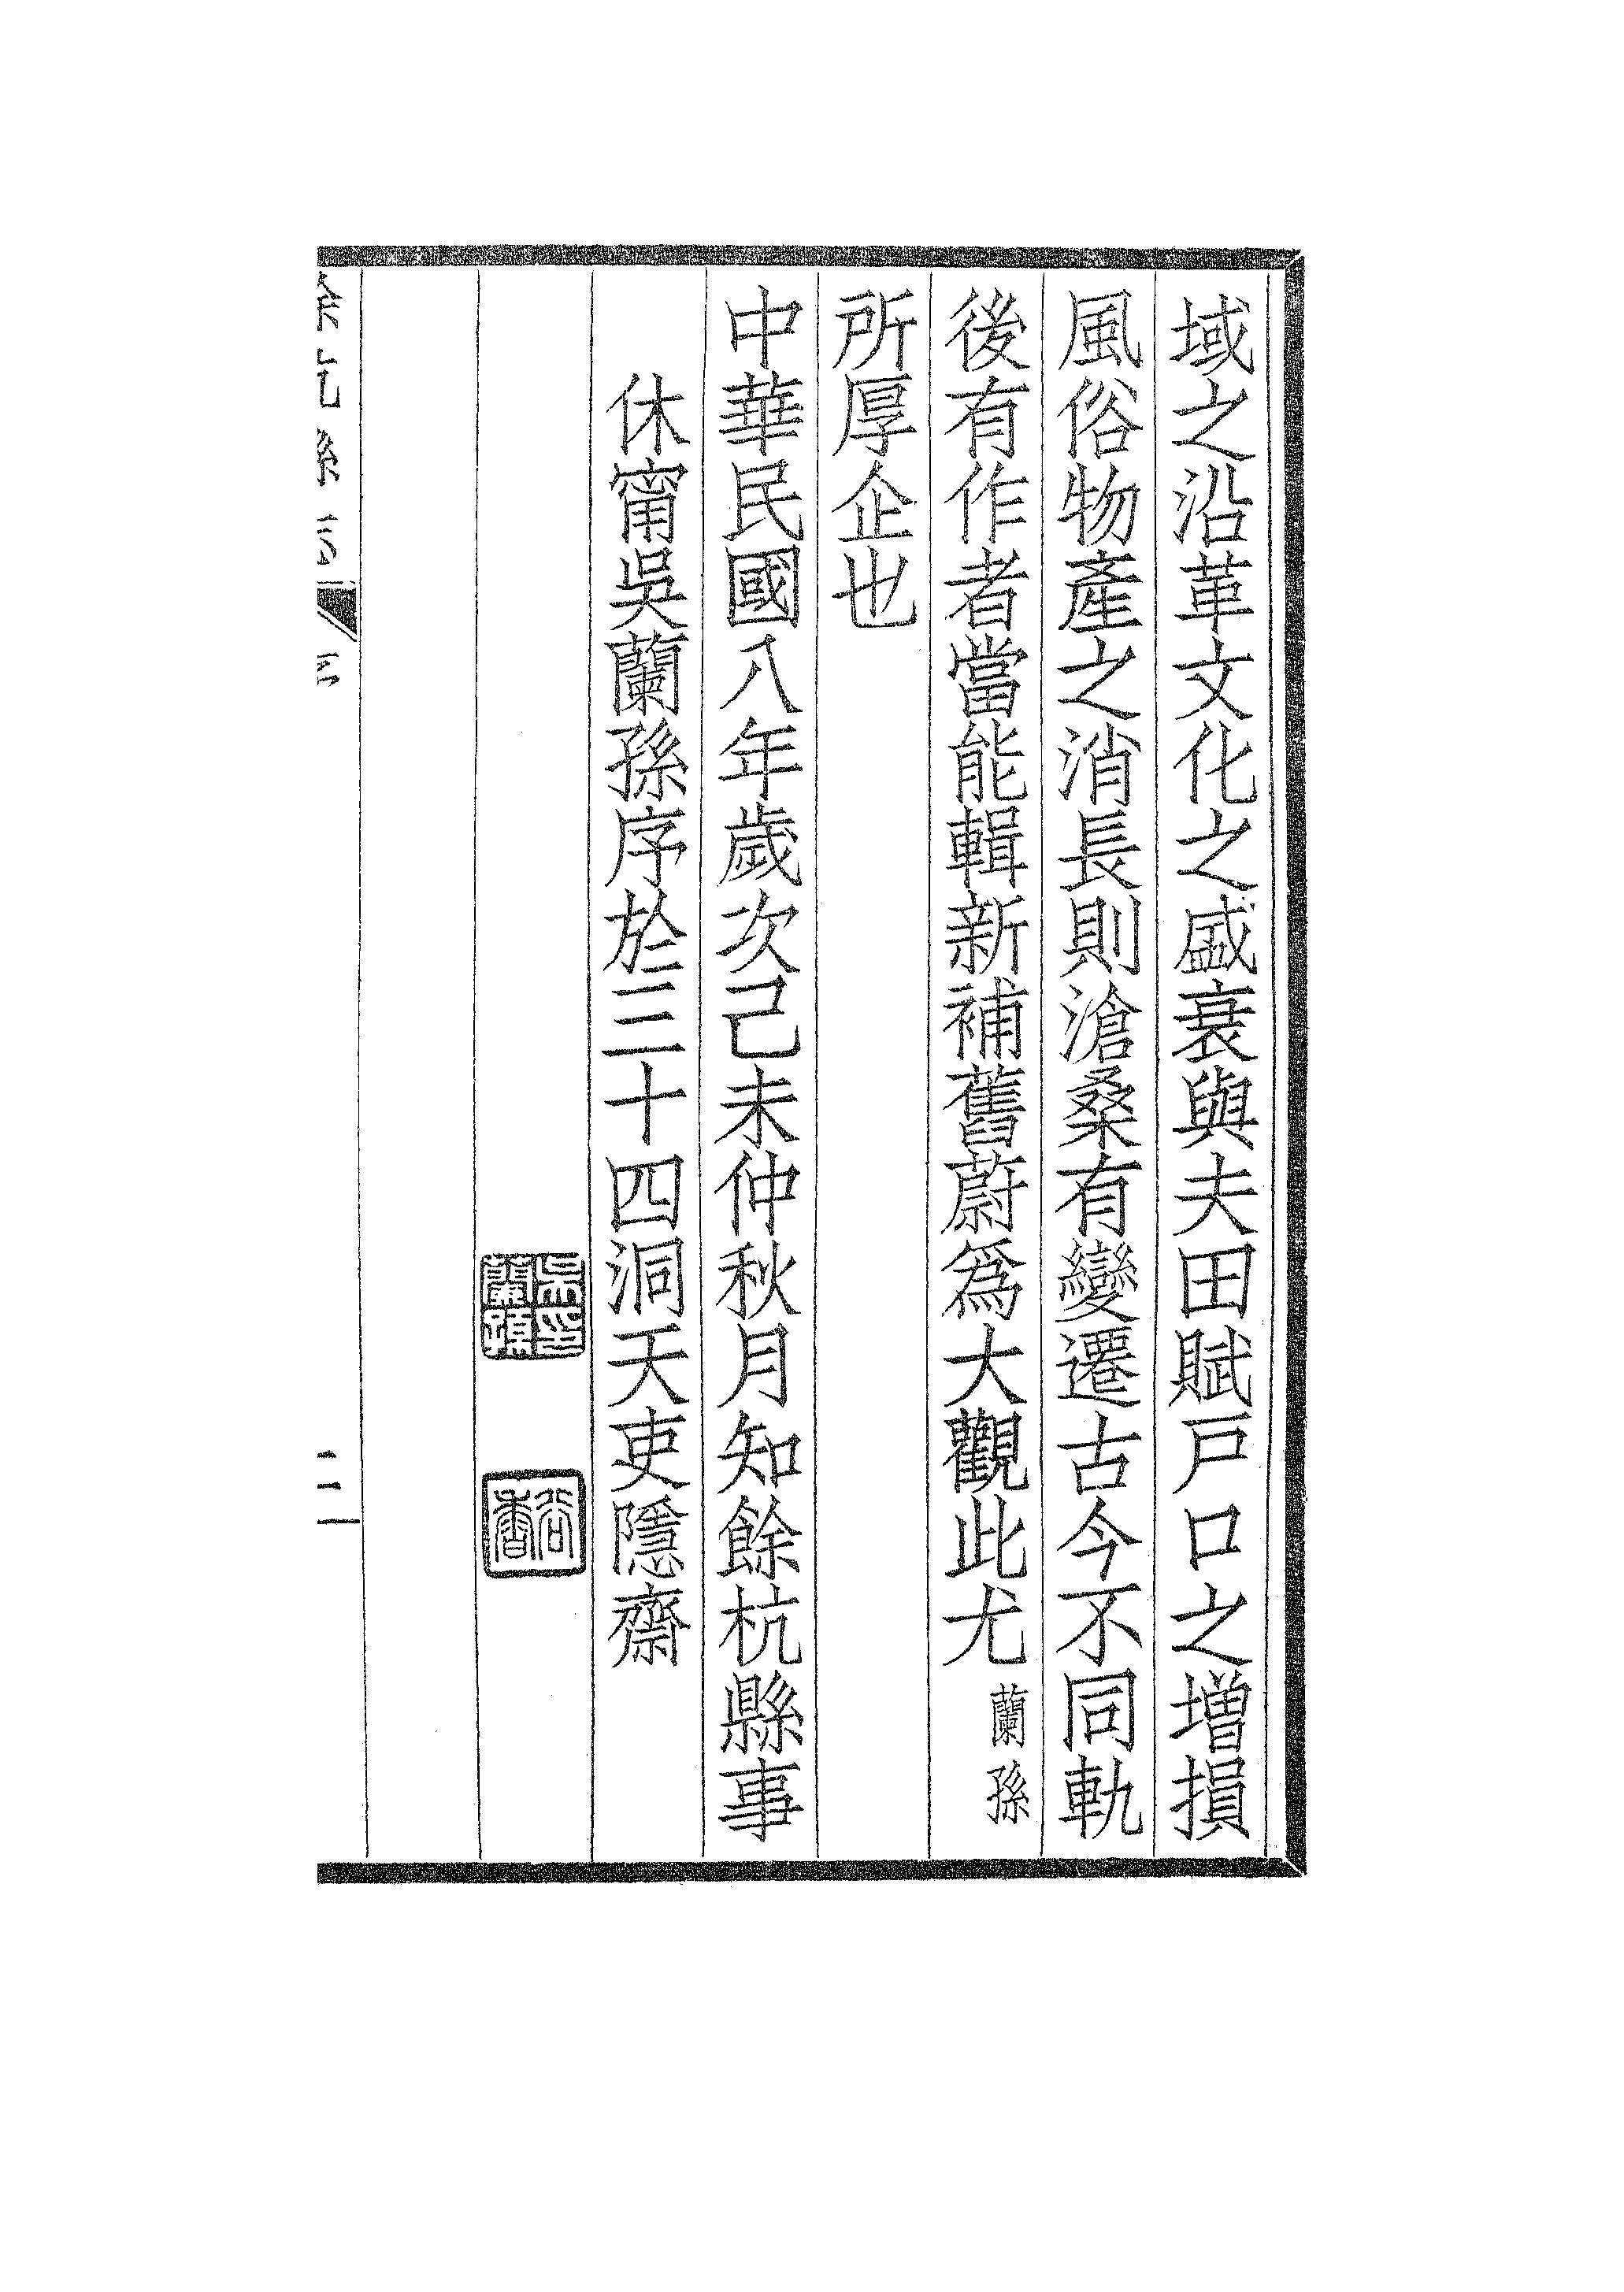 域之沿革文化之盛衰與夫田賦戶口之增損
風俗物產之消長則滄桑有變遷古今不同軌
後有作者當能輯新補舊蔚爲大觀此尤蘭孫
所厚企也
中華民國八年歲次己未仲秋月知餘杭縣事
休甯吳蘭孫序於三十四洞天吏隱齋
吳印蘭孫
谷香